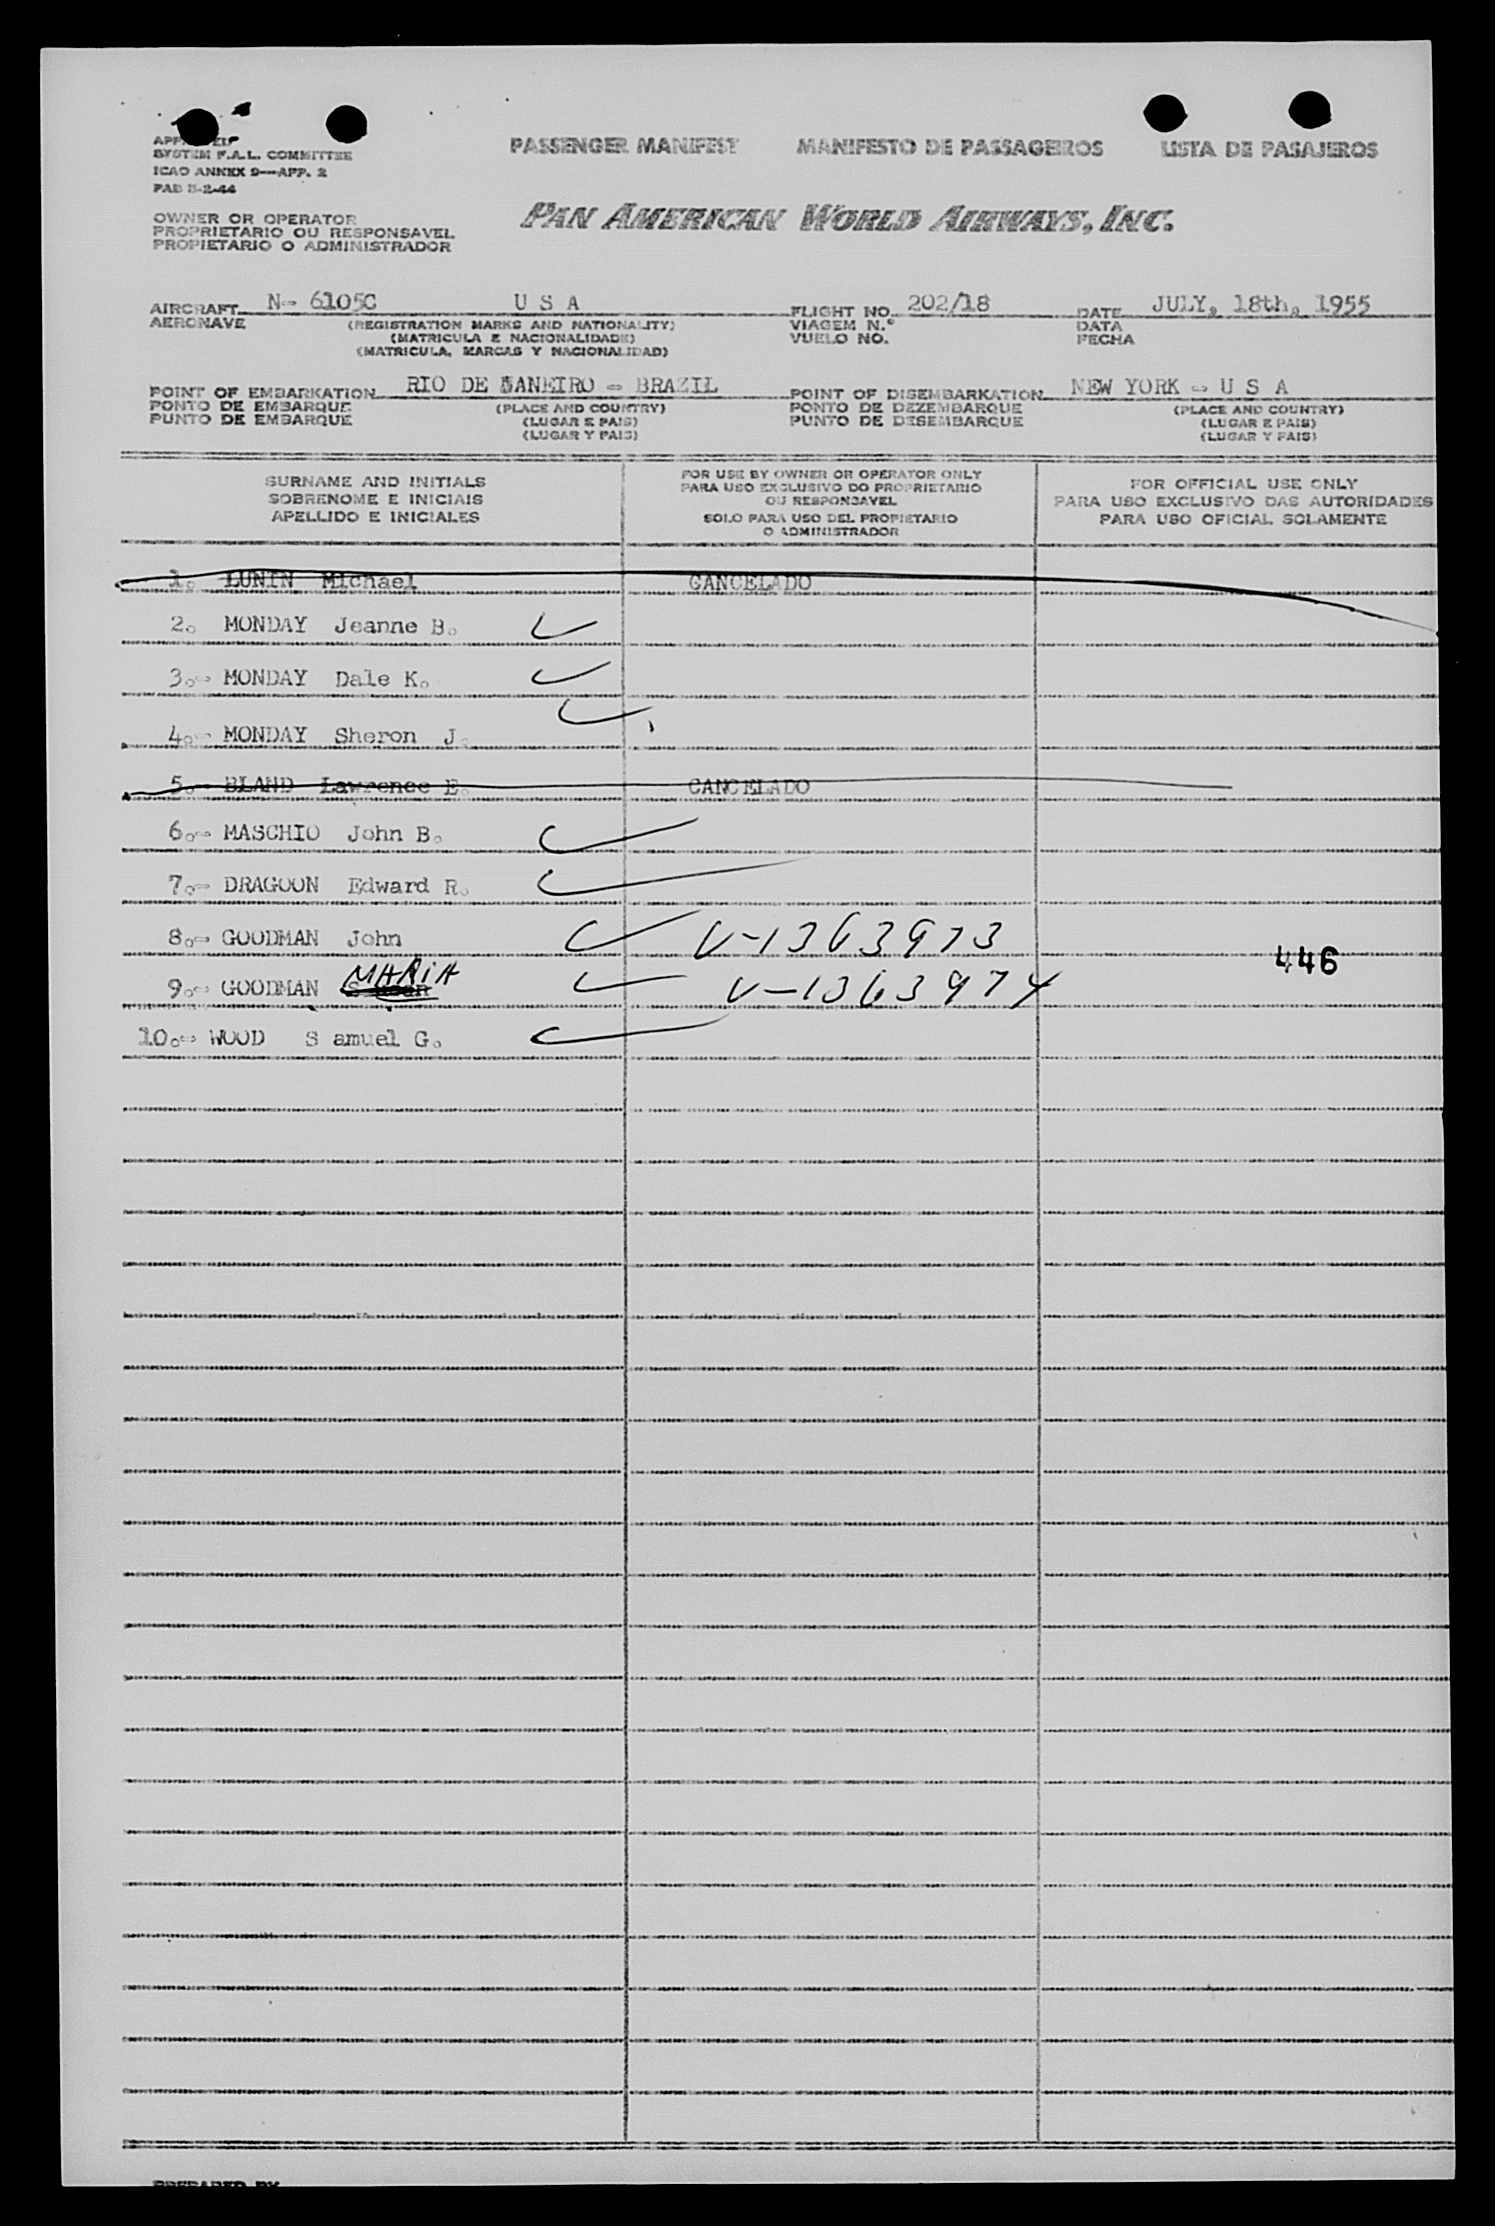 PASSENGER MANIFEST MANIFESTO DE PASSAGEIROS LISTA DE PASAJEROS
SYSTEM F.A.L. COMMITTEE
ICAO ANNEX 9—APP. 2
PAB 5-2-44
PAN AMERICAN WORLD AIRWAYS, INC.
OWNER OR OPERATOR
PROPRIETARIO OU RESPONSAVEL
PROPIETARIO O ADMINISTRADOR
AIRCRAFT N- 6105C U S A FLIGHT NO. 202/18 DATE JULY, 18th, 1955
AERONAVE (REGISTRATION MARKS AND NATIONALITY) VIAGEM N.º DATA
(MATRICULA E NACIONALIDADE) VUELO NO. FECHA
(MATRICULA, MARCAS Y NACIONALIDAD)
POINT OF EMBARKATION RIO DE JANEIRO - BRAZIL POINT OF DISEMBARKATION NEW YORK - U S A
PONTO DE EMBARQUE (PLACE AND COUNTRY) PONTO DE DEZEMBARQUE (PLACE AND COUNTRY)
PUNTO DE EMBARQUE (LUGAR E PAIS) PUNTO DE DESEMBARQUE (LUGAR E PAIS)
(LUGAR Y PAIS) (LUGAR Y PAIS)
SURNAME AND INITIALS
SOBRENOME E INICIAIS
APELLIDO E INICIALES
FOR USE BY OWNER OR OPERATOR ONLY
PARA USO EXCLUSIVO DO PROPRIETARIO
OU RESPONSAVEL
SOLO PARA USO DEL PROPIETARIO
O ADMINISTRADOR
FOR OFFICIAL USE ONLY
PARA USO EXCLUSIVO DAS AUTORIDADES
PARA USO OFICIAL SOLAMENTE
1. LUNIN Michael CANCELADO
2. MONDAY Jeanne B.
3.- MONDAY Dale K.
4.- MONDAY Sheron J.
5.- BLAND Lawrence E. CANCELADO
6.- MASCHIO John B.
7.- DRAGOON Edward R.
8.- GOODMAN John V-1363973
446
9.- GOODMAN MARIA V-1363974
10.- WOOD S amuel G.
PREPARED BY